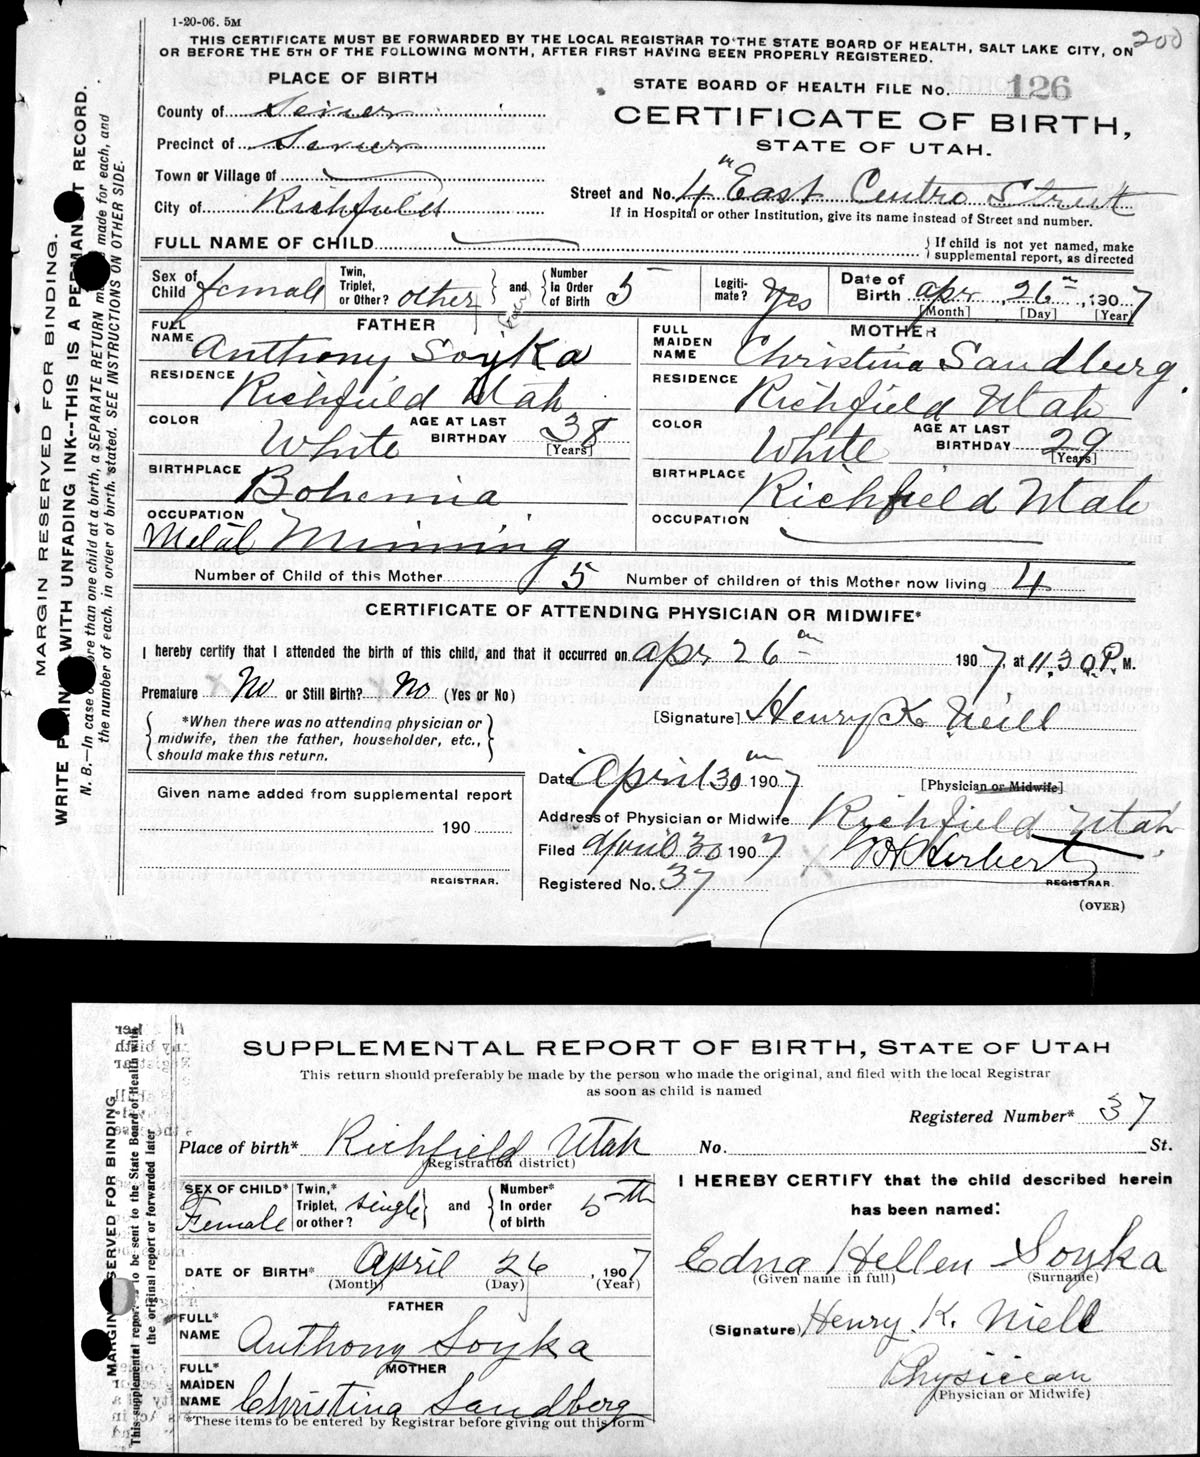 1-20-06. 5M
200
THIS CERTIFICATE MUST BE FORWARDED BY THE LOCAL REGISTRAR TO THE STATE BOARD OF HEALTH, SALT LAKE CITY, ON
OR BEFORE THE 5TH OF THE FOLLOWING MONTH, AFTER FIRST HAVING BEEN PROPERLY REGISTERED.
PLACE OF BIRTH
County of Sevier
Precinct of Sevier
Town or Village of
City of Richfield
STATE BOARD OF HEALTH FILE No. 126
CERTIFICATE OF BIRTH,
STATE OF UTAH.
Street and No. 4" East Centre Street
If in Hospital or other Institution, give its name instead of Street and number.
FULL NAME OF CHILD
If child is not yet named, make
supplemental report, as directed
Sex of Child female
Twin, Triplet, or Other? other
and
Number In Order of Birth 5
Legitimate? Yes
Date of Birth Apr 26th, 1907
[Month] [Day] [Year]
FATHER
FULL NAME Anthony Soyka
RESIDENCE Richfield Utah
COLOR White
AGE AT LAST BIRTHDAY 38
[Years]
BIRTHPLACE Bohemia
OCCUPATION Metal Minning
MOTHER
FULL MAIDEN NAME Christina Sandberg.
RESIDENCE Richfield Utah
COLOR White
AGE AT LAST BIRTHDAY 29
[Years]
BIRTHPLACE Richfield Utah
OCCUPATION
Number of Child of this Mother 5 Number of children of this Mother now living 4
CERTIFICATE OF ATTENDING PHYSICIAN OR MIDWIFE*
I hereby certify that I attended the birth of this child, and that it occurred on Apr 26th 1907, at 11.30 P. M.
Premature No or Still Birth? No (Yes or No)
*When there was no attending physician or
midwife, then the father, householder, etc.,
should make this return.
[Signature] Henry K Neill
Date April 30th 1907
[Physician or Midwife]
Address of Physician or Midwife Richfield Utah
Filed April 30 1907
Herbert
REGISTRAR.
Registered No. 37
(OVER)
Given name added from supplemental report
190
REGISTRAR.
MARGIN RESERVED FOR BINDING.
WRITE WITH UNFADING INK--THIS IS A RECORD.
N. B.—In case more than one child at a birth, a SEPARATE RETURN made for each, and
the number of each, in order of birth, stated. SEE INSTRUCTIONS ON OTHER SIDE.
SUPPLEMENTAL REPORT OF BIRTH, STATE OF UTAH
This return should preferably be made by the person who made the original, and filed with the local Registrar
as soon as child is named
Registered Number* 37
Place of birth* Richfield Utah No. St.
(Registration district)
SEX OF CHILD* Female
Twin,* Triplet, or other? single
and
Number* In order of birth 5th
DATE OF BIRTH* April 26, 1907
(Month) (Day) (Year)
FATHER
FULL* NAME Anthony Soyka
MOTHER
FULL* MAIDEN NAME Christina Sandberg
*These items to be entered by Registrar before giving out this form
I HEREBY CERTIFY that the child described herein
has been named:
Edna Hellen Soyka
(Given name in full) (Surname)
(Signature) Henry. K. Niell
Physician
(Physician or Midwife)
MARGIN RESERVED FOR BINDING
This supplemental report to be sent to the State Board of Health with
the original report or forwarded later